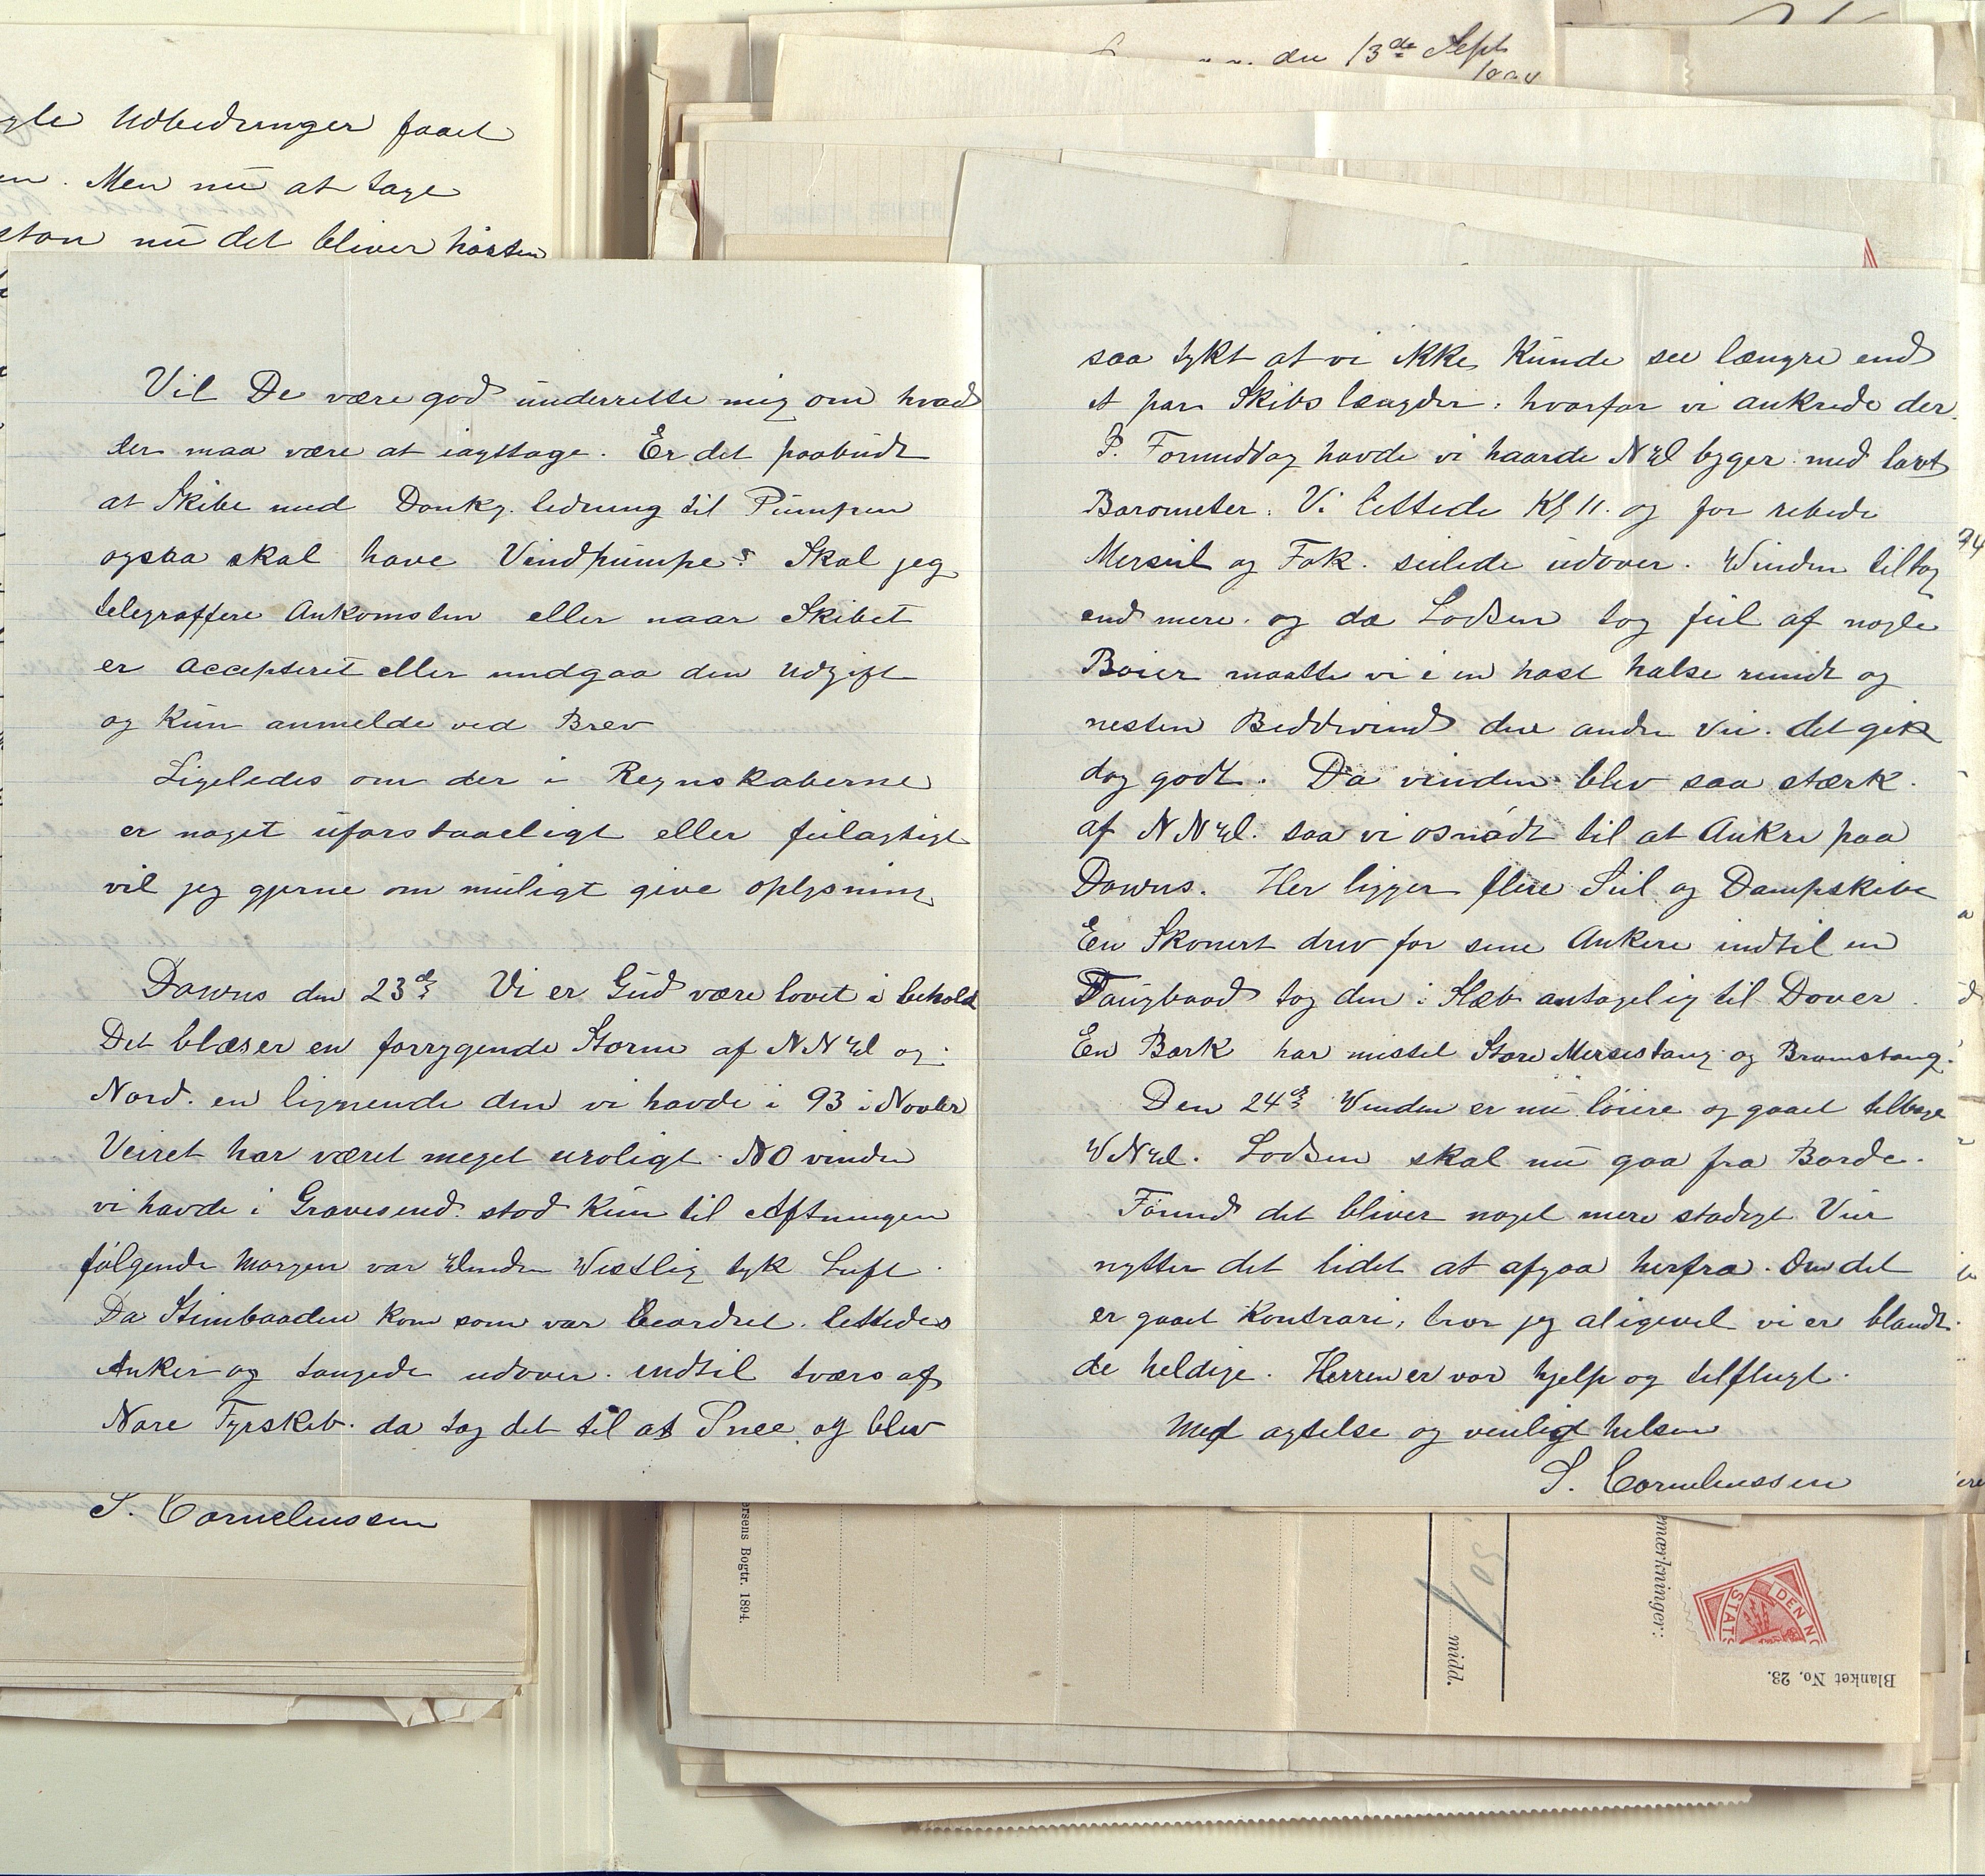 den 13de Sept
Udbedringer faaet
. Men nu at tage
nu det bliver hösten
Vil De være god underrette mig om hvad
der maa være at iagttage. Er det paabudt
at Skibe med Donky. ledning til Pumpen
ogsaa skal have Vindpumpe? Skal jeg
telegraffere Ankomsten eller naar Skibet
er accepteret eller undgaa den Udgift
og kun anmelde ved Brev
Ligeledes om der i Regnskaberne
er noget uforstaaeligt eller feilagtigt
vil jeg gjerne om muligt give oplysning
Downs den 23de Vi er Gud være lovet i behold
Det blæser en forrygende Storm af NNW og
Nord. en lignende den vi havde i 93 i Novbr
Veiret har været meget uroligt. NO vinden
vi havde i Gravesend. stod kun til Aftningen
følgende Morgen var Winden Westlig tyk Luft.
Da Stimbaaden kom som var beordret. lettedes
Anker og taugede udover. indtil tværs af
Nore Fyrskib. da tog det til at Snee. og blev
saa tykt at vi ikke kunde see længre end
et par Skibs længder: hvorfor vi ankrede der.
I. Formiddag havde vi haarde NW byger med lavt
Barometer. Vi lettede Kl 11. og for rebede
Merseil og Fok. seilede udover. Winden tiltog
end mere. og da Lodsen tog feil af nogle
Boier maatte vi i en hast halse rundt og
nesten Biddevind den anden Vei. det gik
dog godt. Da vinden blev saa stærk.
af NNW. saa vi os nödt til at Ankre paa
Downs. Her ligger flere Seil og Dampskibe
En Skonert drev for sine Ankere indtil en
Taugbaad tog den i Slæb antagelig til Dover.
En Bark har mistet Store Mersestang og Bramstang.
Den 24de Winden er nu löiere og gaaet tilbage
WNW. Lodsen skal nu gaa fra Borde.
Förend det bliver noget mere stadigt Veir
nytter det lidet at afgaa herfra. Om det
er gaaet Kontrari, tror jeg aligevel vi er blandt
de heldige. Herren er vor hjelp og tilflugt.
Med agtelse og venligt helsen
S. Corneliussen
S. Corneliussen
ersens Bogtr. 1894.
midd.
mærkninger:
DEN NO
STATS
Blanket No. 23.